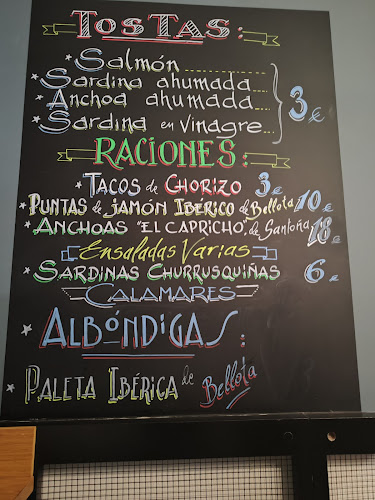 TOSTAS:
* Salmón
* Sardina ahumada
* Anchoa ahumada
* Sardina en vinagre
3€
RACIONES:
* TACOS de CHORIZO 3€
* PUNTAS de JAMÓN IBÉRICO de Bellota 10€
* ANCHOAS "EL CAPRICHO" de Santoña 18€
Ensaladas Varias
* SARDINAS CHURRUSQUIÑAS 6€
CALAMARES
* ALBÓNDIGAS:
* PALETA IBÉRICA de Bellota